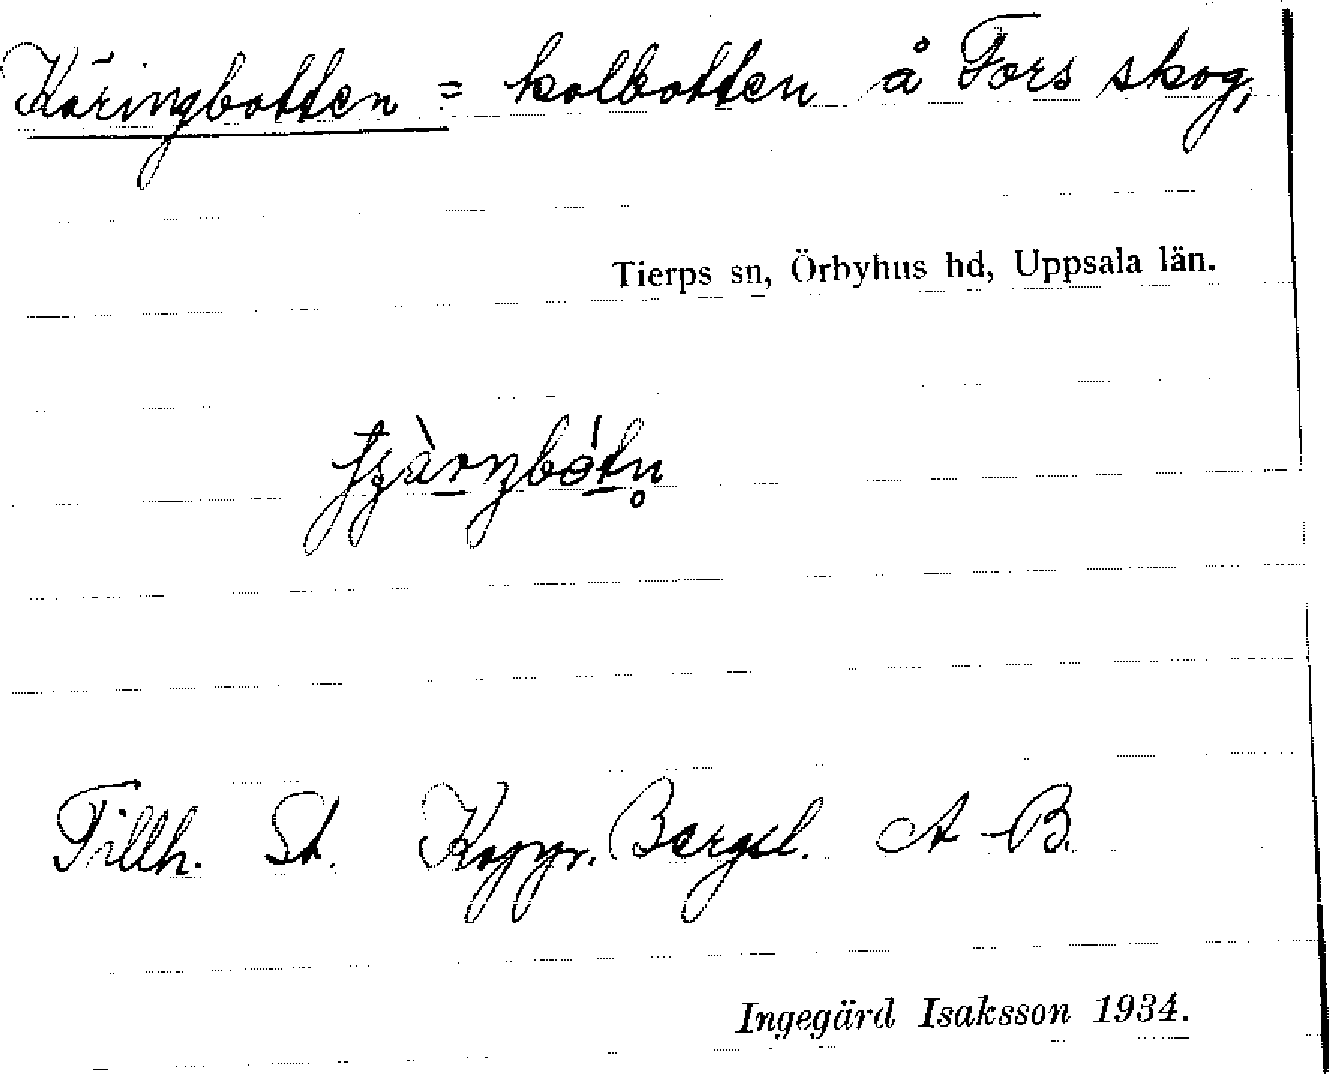 Käringbotten = kolbotten å Fors skog,
Tierps sn, Örbyhus hd, Uppsala län.
Tillh. St. Koppr. Bergsl. A-B.
Ingegärd Isaksson 1934.